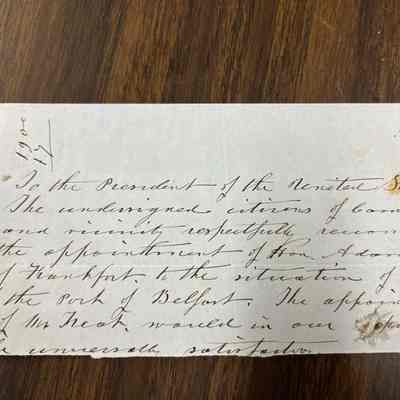 190
17
To the President of the United S
The undersigned citizens of
and vicinity respectfully recom
the appointment of Hon. Adam
of Frankfort, to the situation of
the Port of Belfast. The appoin
of Mr Treat, would in our
universal satisfaction